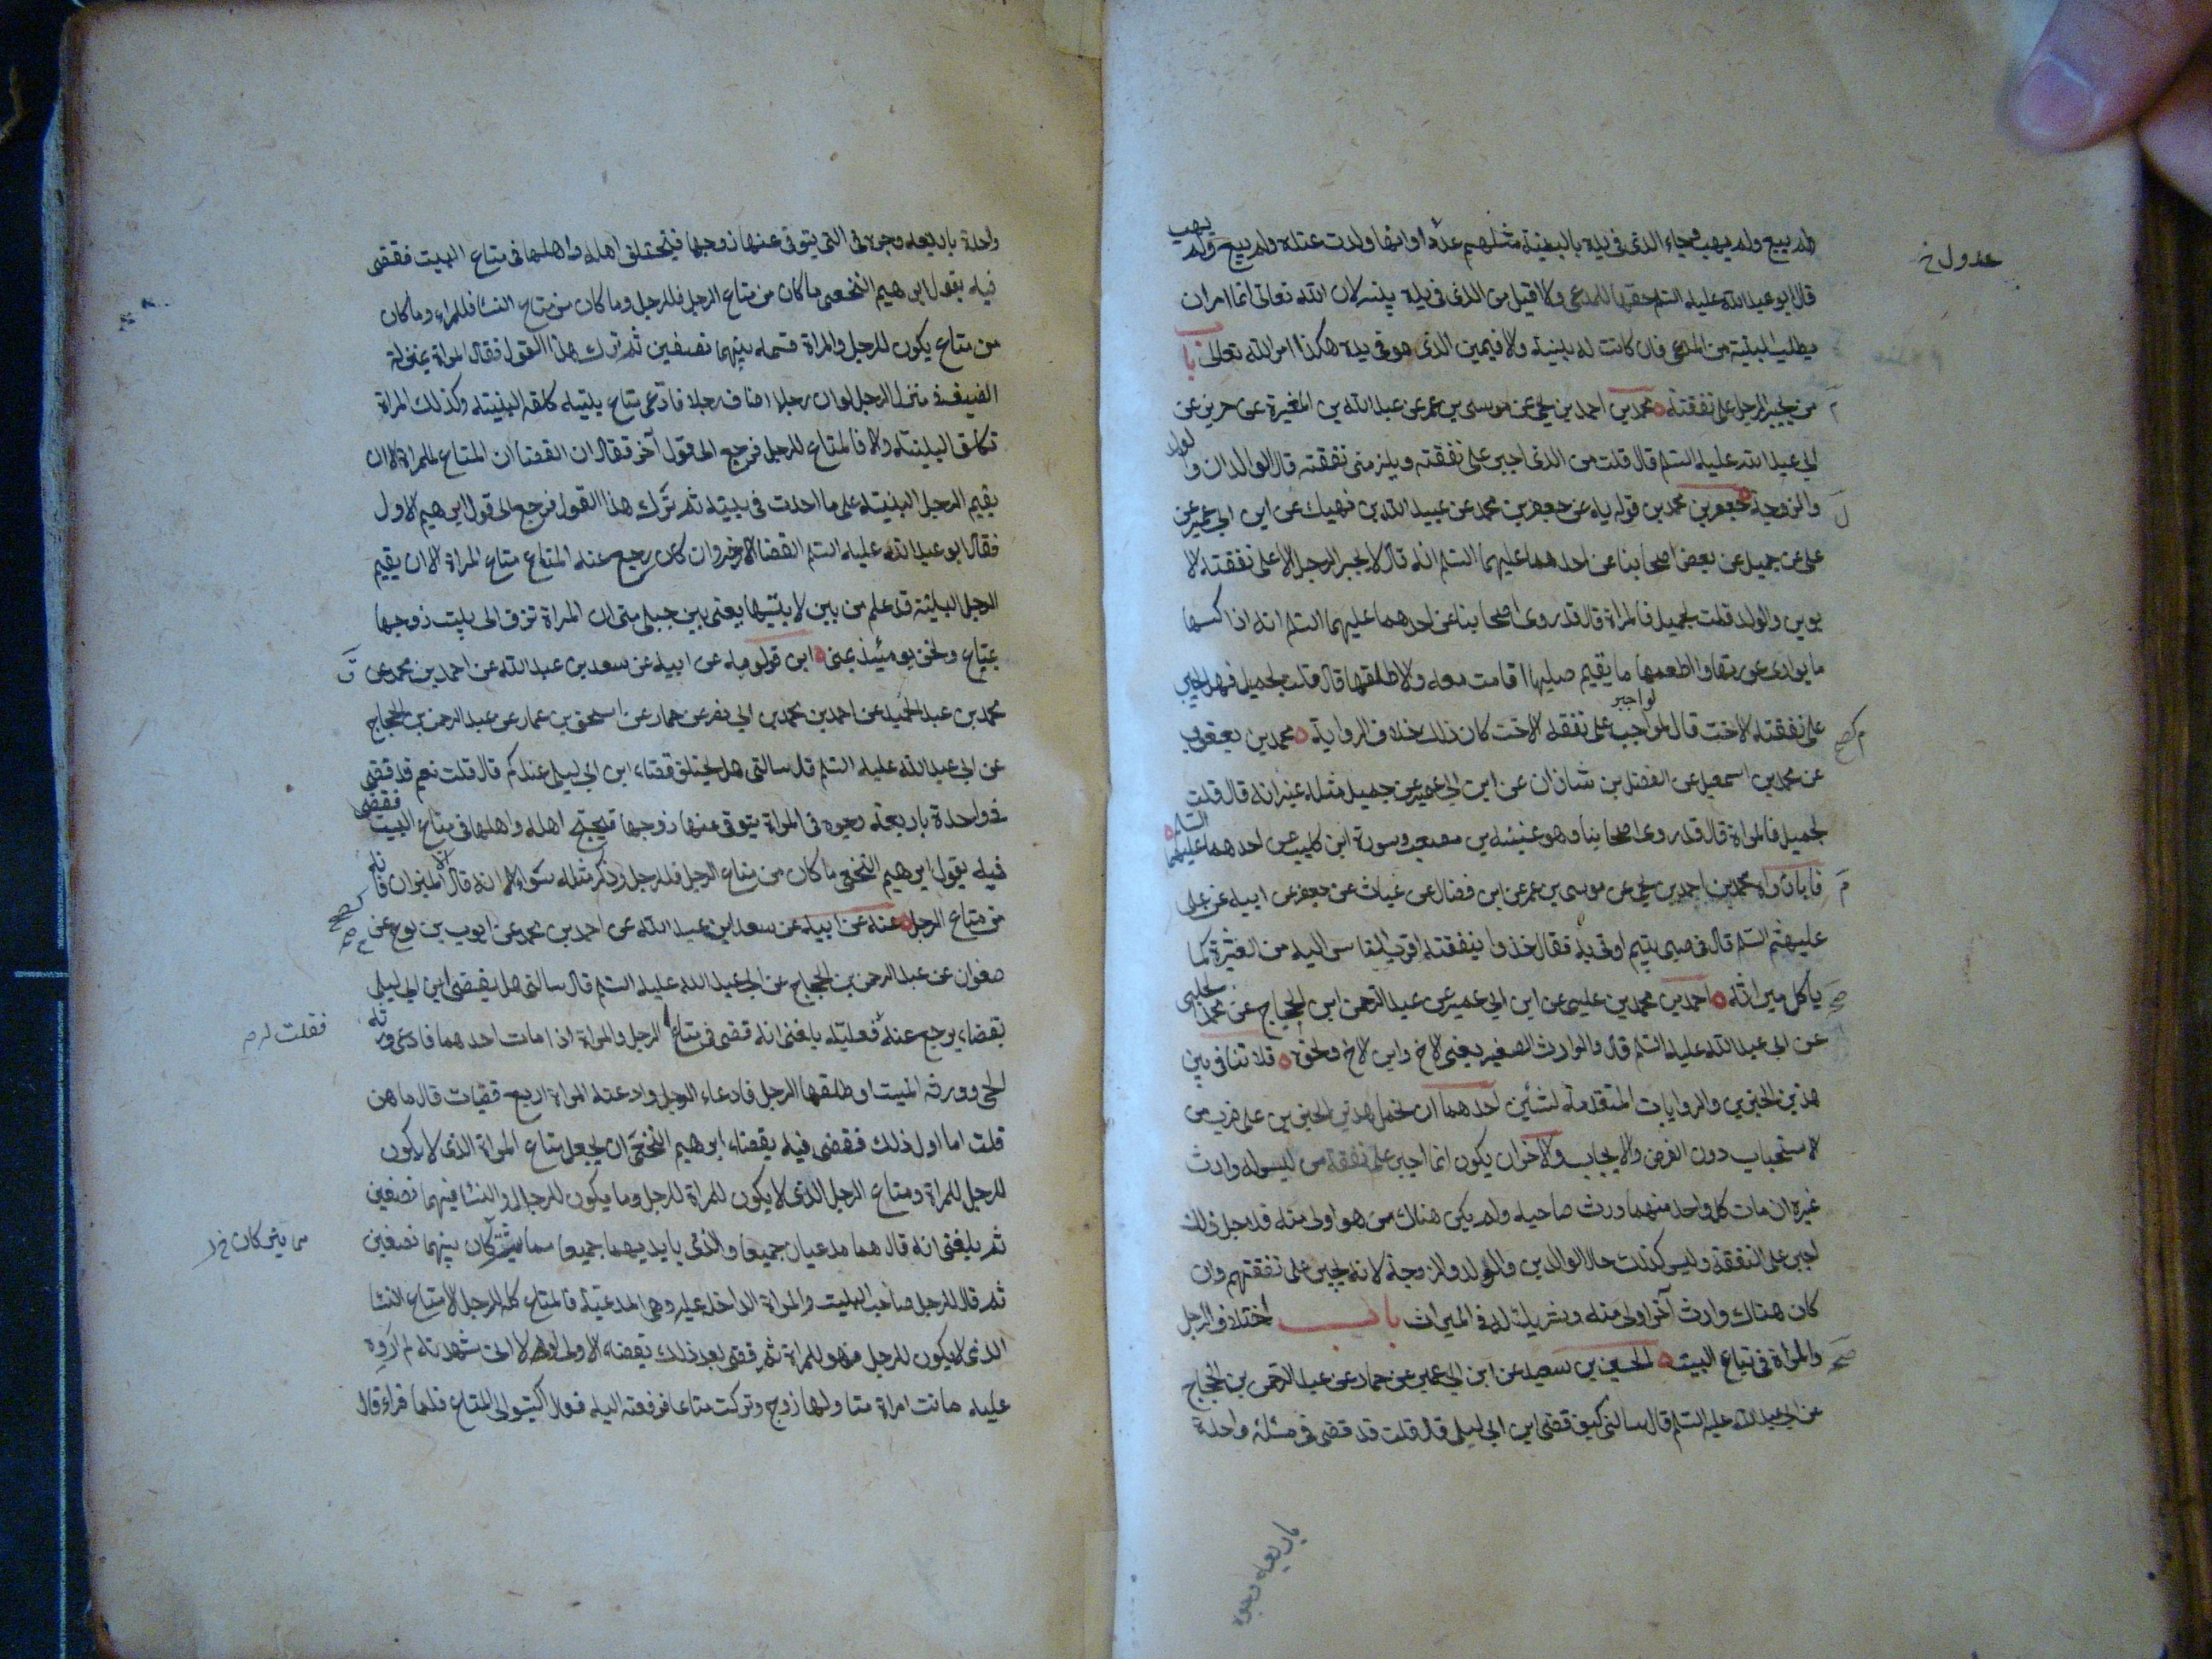 لم يبع ولم يهب وجاء الذى فى يده بالبينة مثلهم عددا وانها ولدت عنده ولم يبع ولم يهب
عدول خ
قال ابو عبد الله عليه السلم حقها للمدعى ولا اقبل من الذى فى يده بينه لان الله تعالى انما امر ان
يطلب البينة من المدعى فان كانت له بينة والا فيمين الذى هو فى يده هكذا امر الله تعالى باب
من يجبر الرجل على نفقته محمد بن احمد بن يحيى عن موسى بن عمر عن عبد الله بن المغيرة عن حريز عن
ابى عبد الله عليه السلم قال قلت من الذى اجبر على نفقته ويلزمنى نفقته قال الوالدان والولد
والزوجة جعفر بن محمد بن قولويه عن جعفر بن محمد عن عبيد الله بن نهيك عن ابن ابى عمير عن
على عن جميل عن بعض اصحابنا عن احدهما عليهما السلم انه قال لا يجبر الرجل الا على نفقته الا
بوين والولد قلت لجميل فالمراة قال قد روى اصحابنا عن احدهما عليهما السلم انه اذا كسها
ما يوارى عورتها واطعمها ما يقيم صلبها اقامت معه والا طلقها قال قلت لجميل فهل يجبر
على نفقته الاخت قال لو اجبر على نفقه الاخت كان ذلك خلاف الرواية محمد بن يعقوب
لو اجبر
عن محمد بن اسمعيل عن الفضل بن شاذان عن ابن ابى عمير عن جميل مثله غير انه قال قلت
لجميل فالمراة قال قد روى اصحابنا وهو عنبسه بن مصعب وسورة ابن كليب عن احدهما عليهما السلم
فاما رواه محمد بن احمد بن يحيى عن موسى بن عمر عن ابن فضال عن غياث عن جعفر عن ابيه عن على
عليهم السلم قال فى صبى يتيم اوتى به فقال خذوا بنفقته اقرب الناس اليه من العشيرة كما
ياكل ميراثه احمد بن محمد بن عيسى عن ابن ابى عمير عن عبد الرحمن ابن الحجاج عن محمد الحلبى
عن ابى عبد الله عليه السلم قال والوارث الصغير يعنى الاخ وابن الاخ ونحوه فلا تنافى بين
هذين الخبرين والروايات المتقدمة لشئين احدهما ان نحمل هذين الخبرين على ضرب من
الاستحباب دون الفرض والايجاب والاخر ان يكون انما اجبر على نفقة من ليس له وارث
غيره ان مات كل واحد منهما ورث صاحبه ولم يكن هناك من هو اولى منه فلاجل ذلك
اجبر على النفقة وليس كذلك حال الوالدين والولد والزوجة لانه يجبر على نفقتهم وان
كان هناك وارث آخر اولى منه وشريك له فى الميراث باب اختلاف الرجل
والمراة فى متاع البيت الحسين بن سعيد عن ابن ابى عمير عن حماد عن عبد الرحمن بن الحجاج
عن ابى عبد الله عليه السلم قال سالنى كيف قضى ابن ابى ليلى قال قلت قد قضى فى مسئلة واحدة
باربعة وجوه
واحدة باربعه وجوه فى التى يتوفى عنها زوجها فيختلف اهله واهلها فى متاع البيت فقضى
فيه بقول ابرهيم النخعى ما كان من متاع الرجل فللرجل وما كان من متاع النسا فللمراه وما كان
من متاع يكون للرجل والمراة قسمه بينهما نصفين ثم ترك هذا القول فقال المراة بمنزلة
الضيف فى منزل الرجل لو ان رجلا اضاف رجلا فادعى متاع بيته كلفه البينه وكذلك المراة
تكلف البينه والا فالمتاع للرجل فرجع الى قول آخر فقال ان القضا ان المتاع للمراة الا ان
يقيم الرجل البينه على ما احدث فى بيته ثم ترك هذا القول فرجع الى قول ابرهيم الاول
فقال ابو عبد الله عليه السلم القضا الاخير وان كان رجع عنه المتاع متاع المراة الا ان يقيم
الرجل البينه قد علم من بين لابتيها يعنى بين جبلى منى ان المراة تزف الى بيت زوجها
بمتاع ونحن يومئذ بمنى ابن قولويه عن ابيه عن سعد بن عبد الله عن احمد بن محمد عن
محمد بن عبد الحميد عن احمد بن محمد بن ابى نصر عن حماد عن اسحق بن عمار عن عبد الرحمن بن الحجاج
عن ابى عبد الله عليه السلم قال سالنى هل يختلف قضاء ابن ابى ليلى عندكم قال قلت نعم قد قضى
فى واحدة باربعة وجوه فى المراة يتوفى عنها زوجها فيحتج اهله واهلها فى متاع البيت فقضى
فيه بقول ابرهيم النخعى ما كان من متاع الرجل فللرجل وذكر مثله سواء الا انه قال الا الميزان فانه
من متاع الرجل عنه عن ابيه عن سعد ابن عبد الله عن احمد بن محمد عن ايوب بن نوح عن
صفوان عن عبد الرحمن بن الحجاج عن ابى عبد الله عليه السلم قال سالنى هل يقضى ابن ابى ليلى
بقضاء يرجع عنه فقلت له بلغنى انه قضى فى متاع الرجل والمراة اذا مات احدهما فادعى ورثه
فقلت له م
الحى وورثه الميت او طلقها الرجل فادعاه الرجل وادعته المراة اربع قضيات قال ما هن
قلت اما اول ذلك فقضى فيه بقضاء ابرهيم النخعى ان يجعل متاع المراة الذى لا يكون
للرجل للمراة ومتاع الرجل الذى لا يكون للمراة للرجل وما يكون للرجال والنسا فبينهما نصفين
ثم بلغنى انه قال هما مدعيان جميعا والذى بايديهما جميعا مما يتركان بينهما نصفين
مما يتركان خ
ثم قال للرجل صاحب البيت والمراة الداخله عليه وهى المدعية فالمتاع كله للرجل الا متاع النسا
الذى لا يكون للرجل فهو للمراة ثم قضى بعد ذلك بقضاء لولا انى شهدته لم اروه
عليه ماتت امراة منا ولها زوج وتركت متاعا فرفعته اليه فقال اكتبوا لى المتاع فلما قراه قال